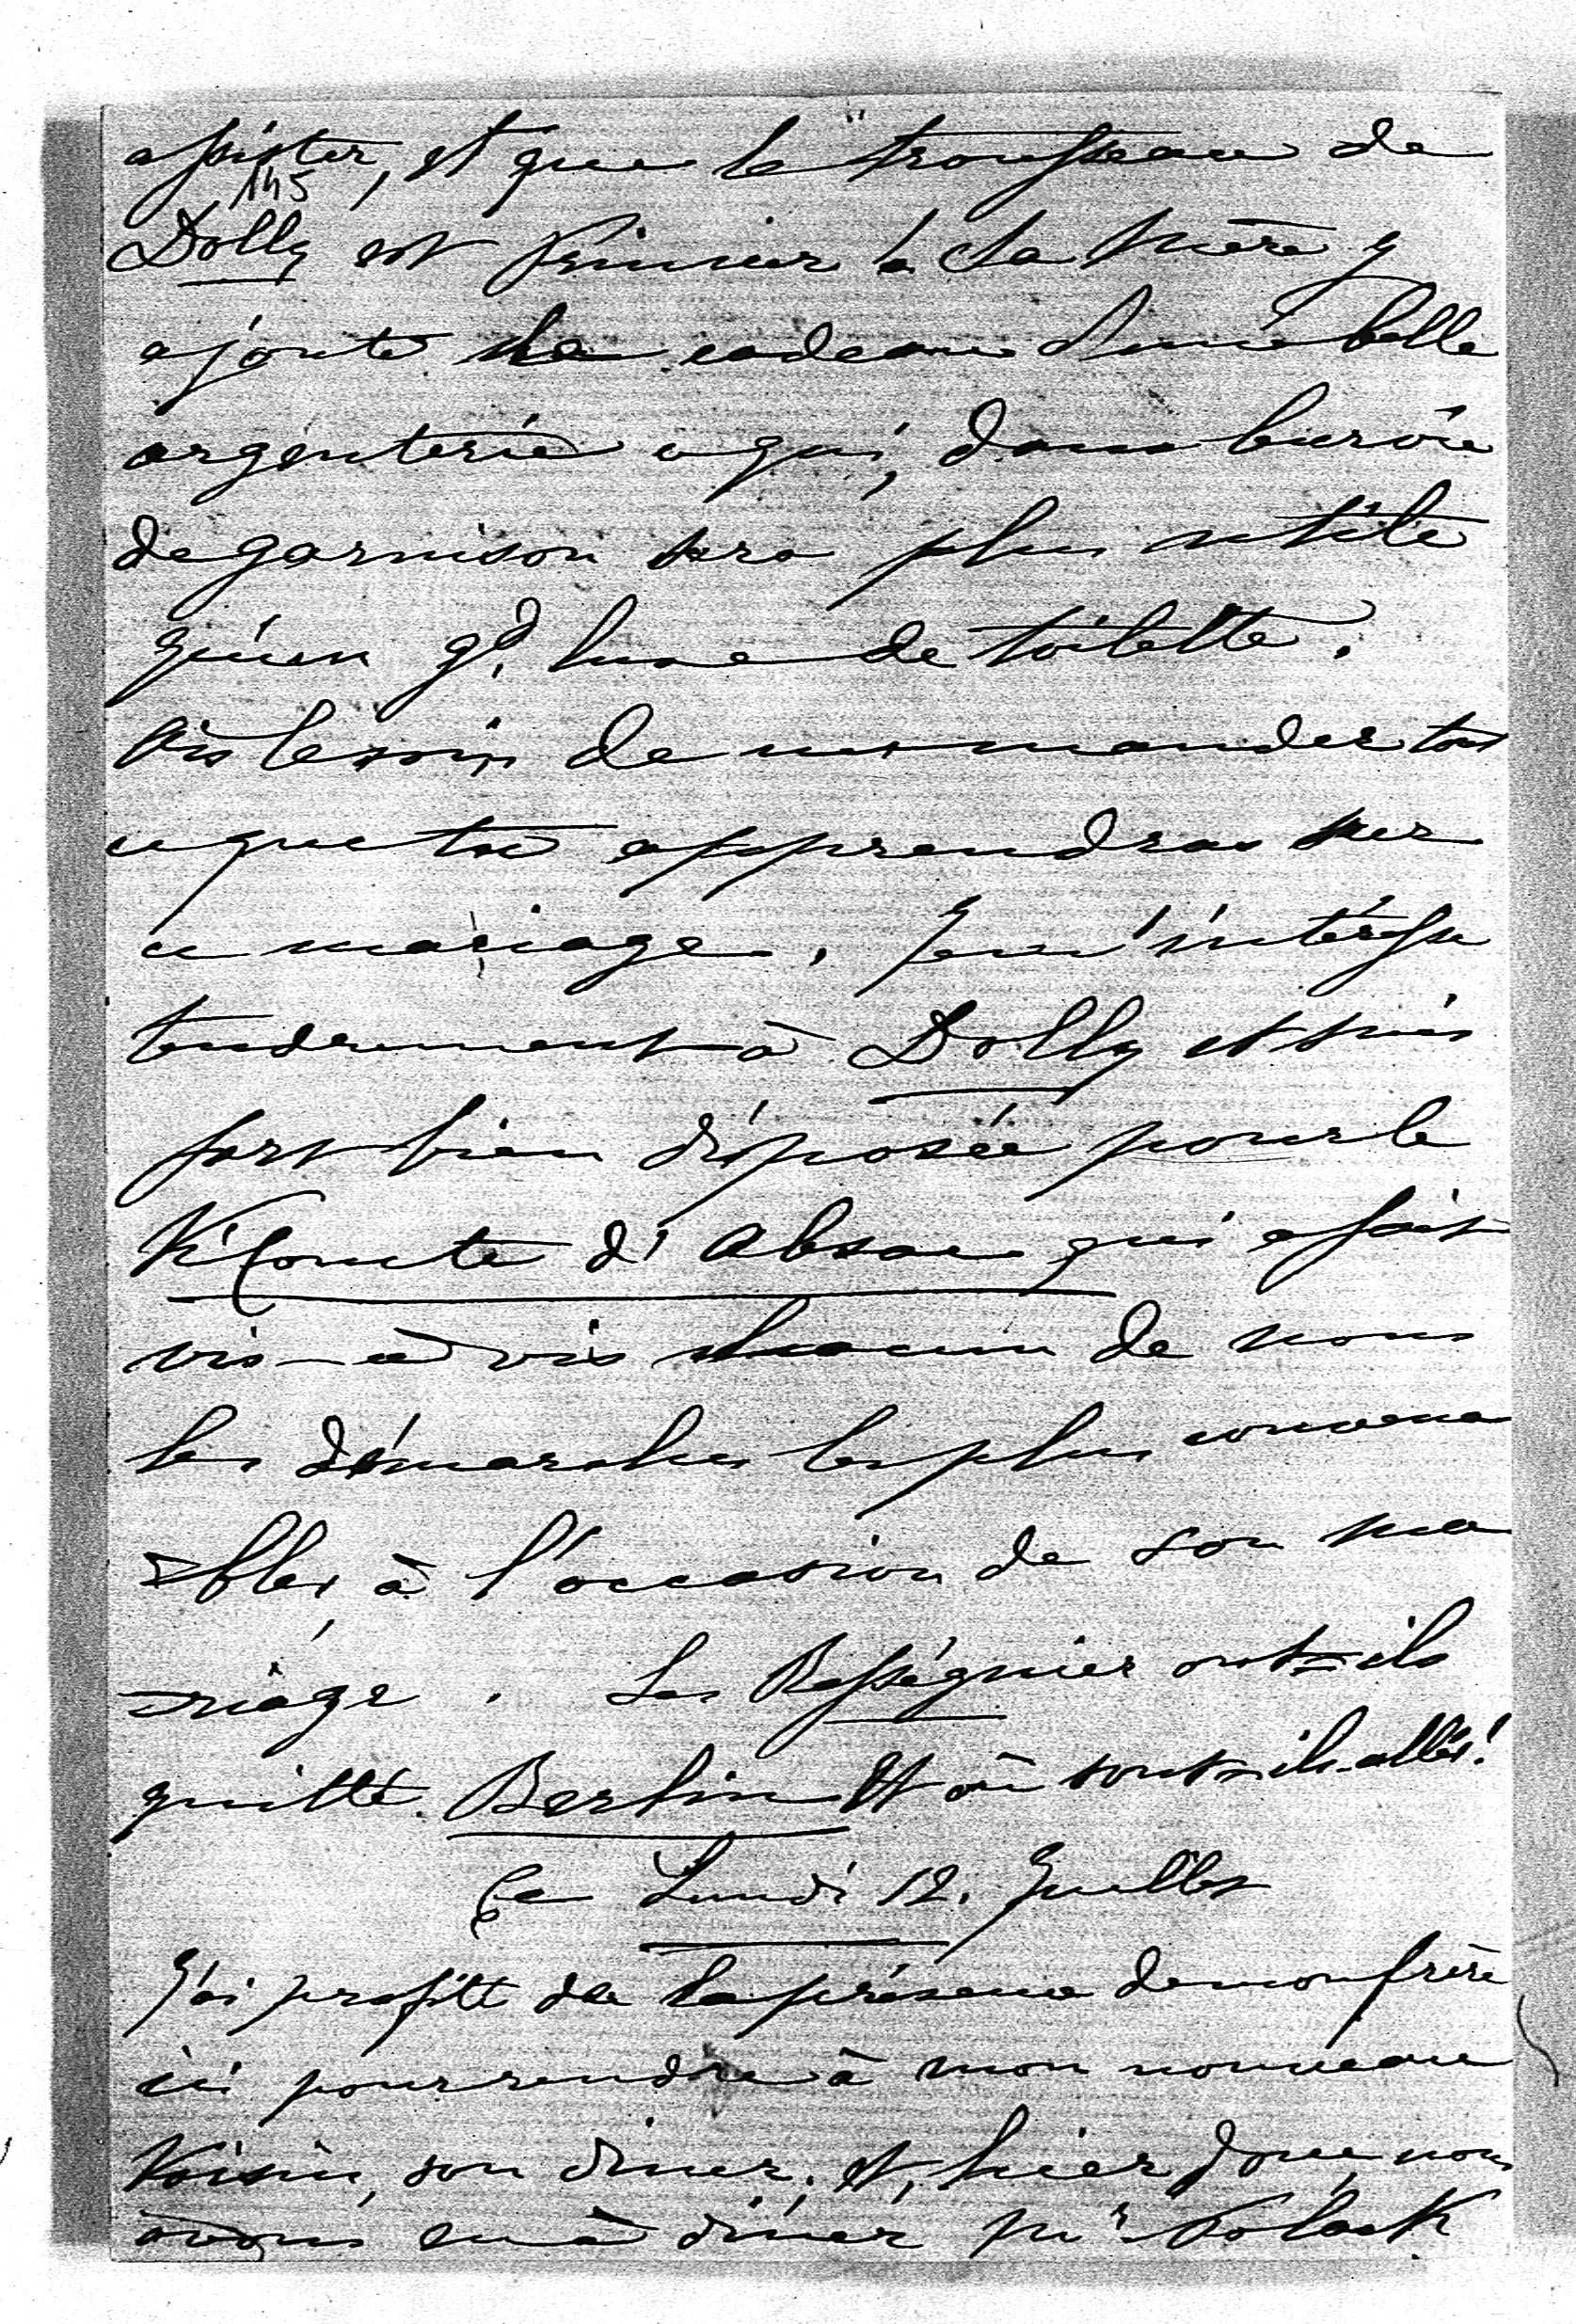 assister, et que le trousseau de
145
Dolly est princier. La Mère y
ajoute le cadeau d'une belle
argenterie ce qui, dans leur vie
de garnison sera plus utile
qu'un gd. luxe de toilette.
Ais le soin de me mander tout
ce que tu apprendras sur
ce mariage. Je m'intéresse
tendrement à Dolly et suis
fort bien disposée pour le
ViComte d'Absac qui a fait
vis-à-vis chacun de nous
les démarches les plus convena
=bles à l'occasion de son ma
=riage. Les Rességuier ont-ils
quitté Berlin et où sont-ils allés!
Ce Lundi 12. Juillet
J'ai profité de la présence de mon frère
ici pour rendre à mon nouveau
Voisin, son diner. et, hier donc, nous
avons eu à diner Mr Polack